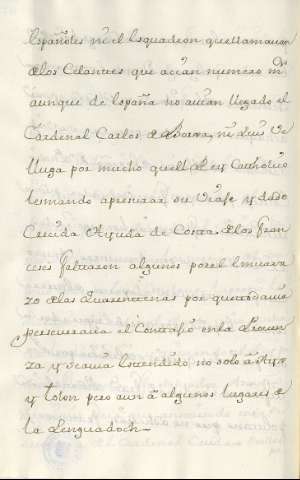 Españoles ni el Esquadron que llamauan
de los Celantes que acian numero
aunque de España no auian llegado el
Cardenal Carlos de Borxa, ni Luis Ve
lluga por mucho que el Rey Catholico
temando apresurar su Viaje y dado
Crecida Ayuda de Costa. de los Fran
ceses faltaron algunos por el embara
zo de las quarentenas por que todauia
perseueraua el Contaxio en la Prouen
za y se auia Estendido no solo a Arx
y tolon pero aun a algunos lugares de
la Lenguadoch